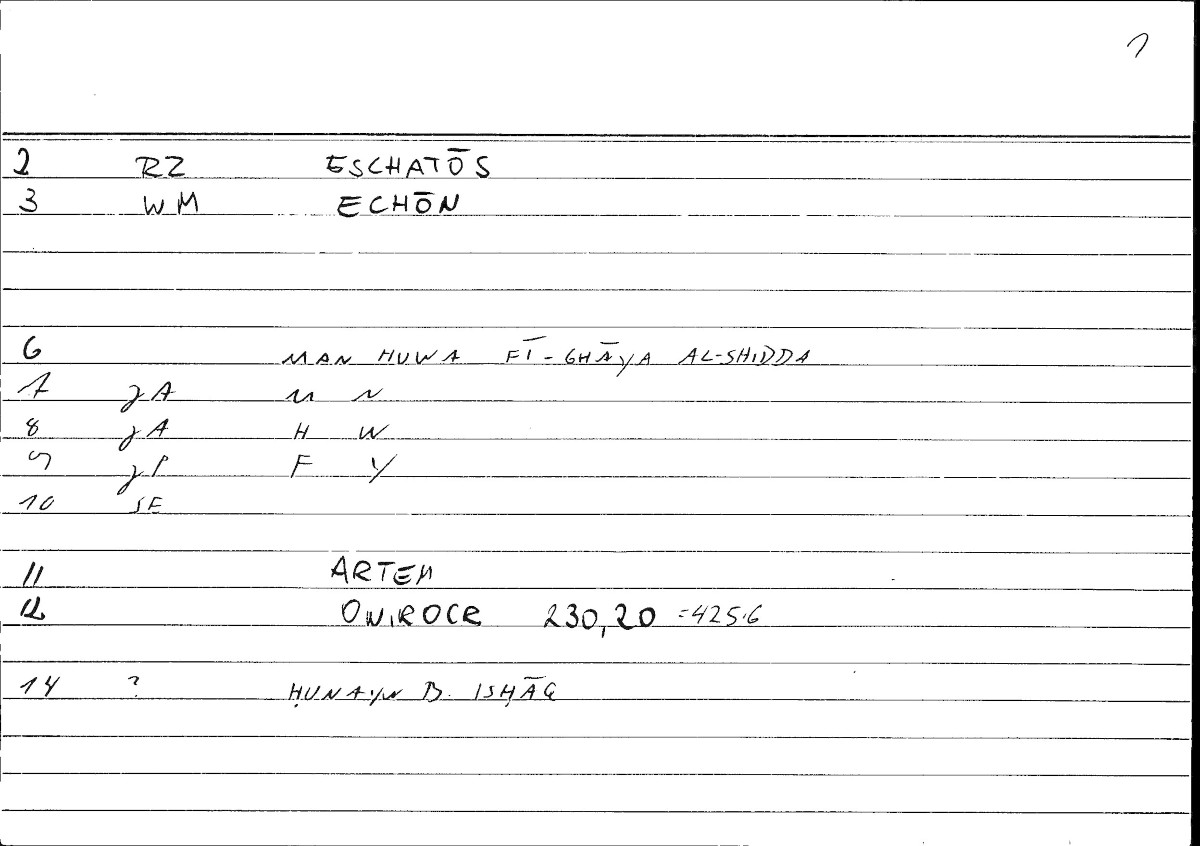 1
2 RZ ESCHATŌS
3 WM ECHŌN
6 MAN HUWA FĪ-GHĀYA AL-SHIDDA
7 JA M N
8 JA H W
9 JP F Y
10 SE
11 ARTEM
12 ONIROCR 230,20 =425.6
14 ? ḤUNAYN B. ISḤĀQ